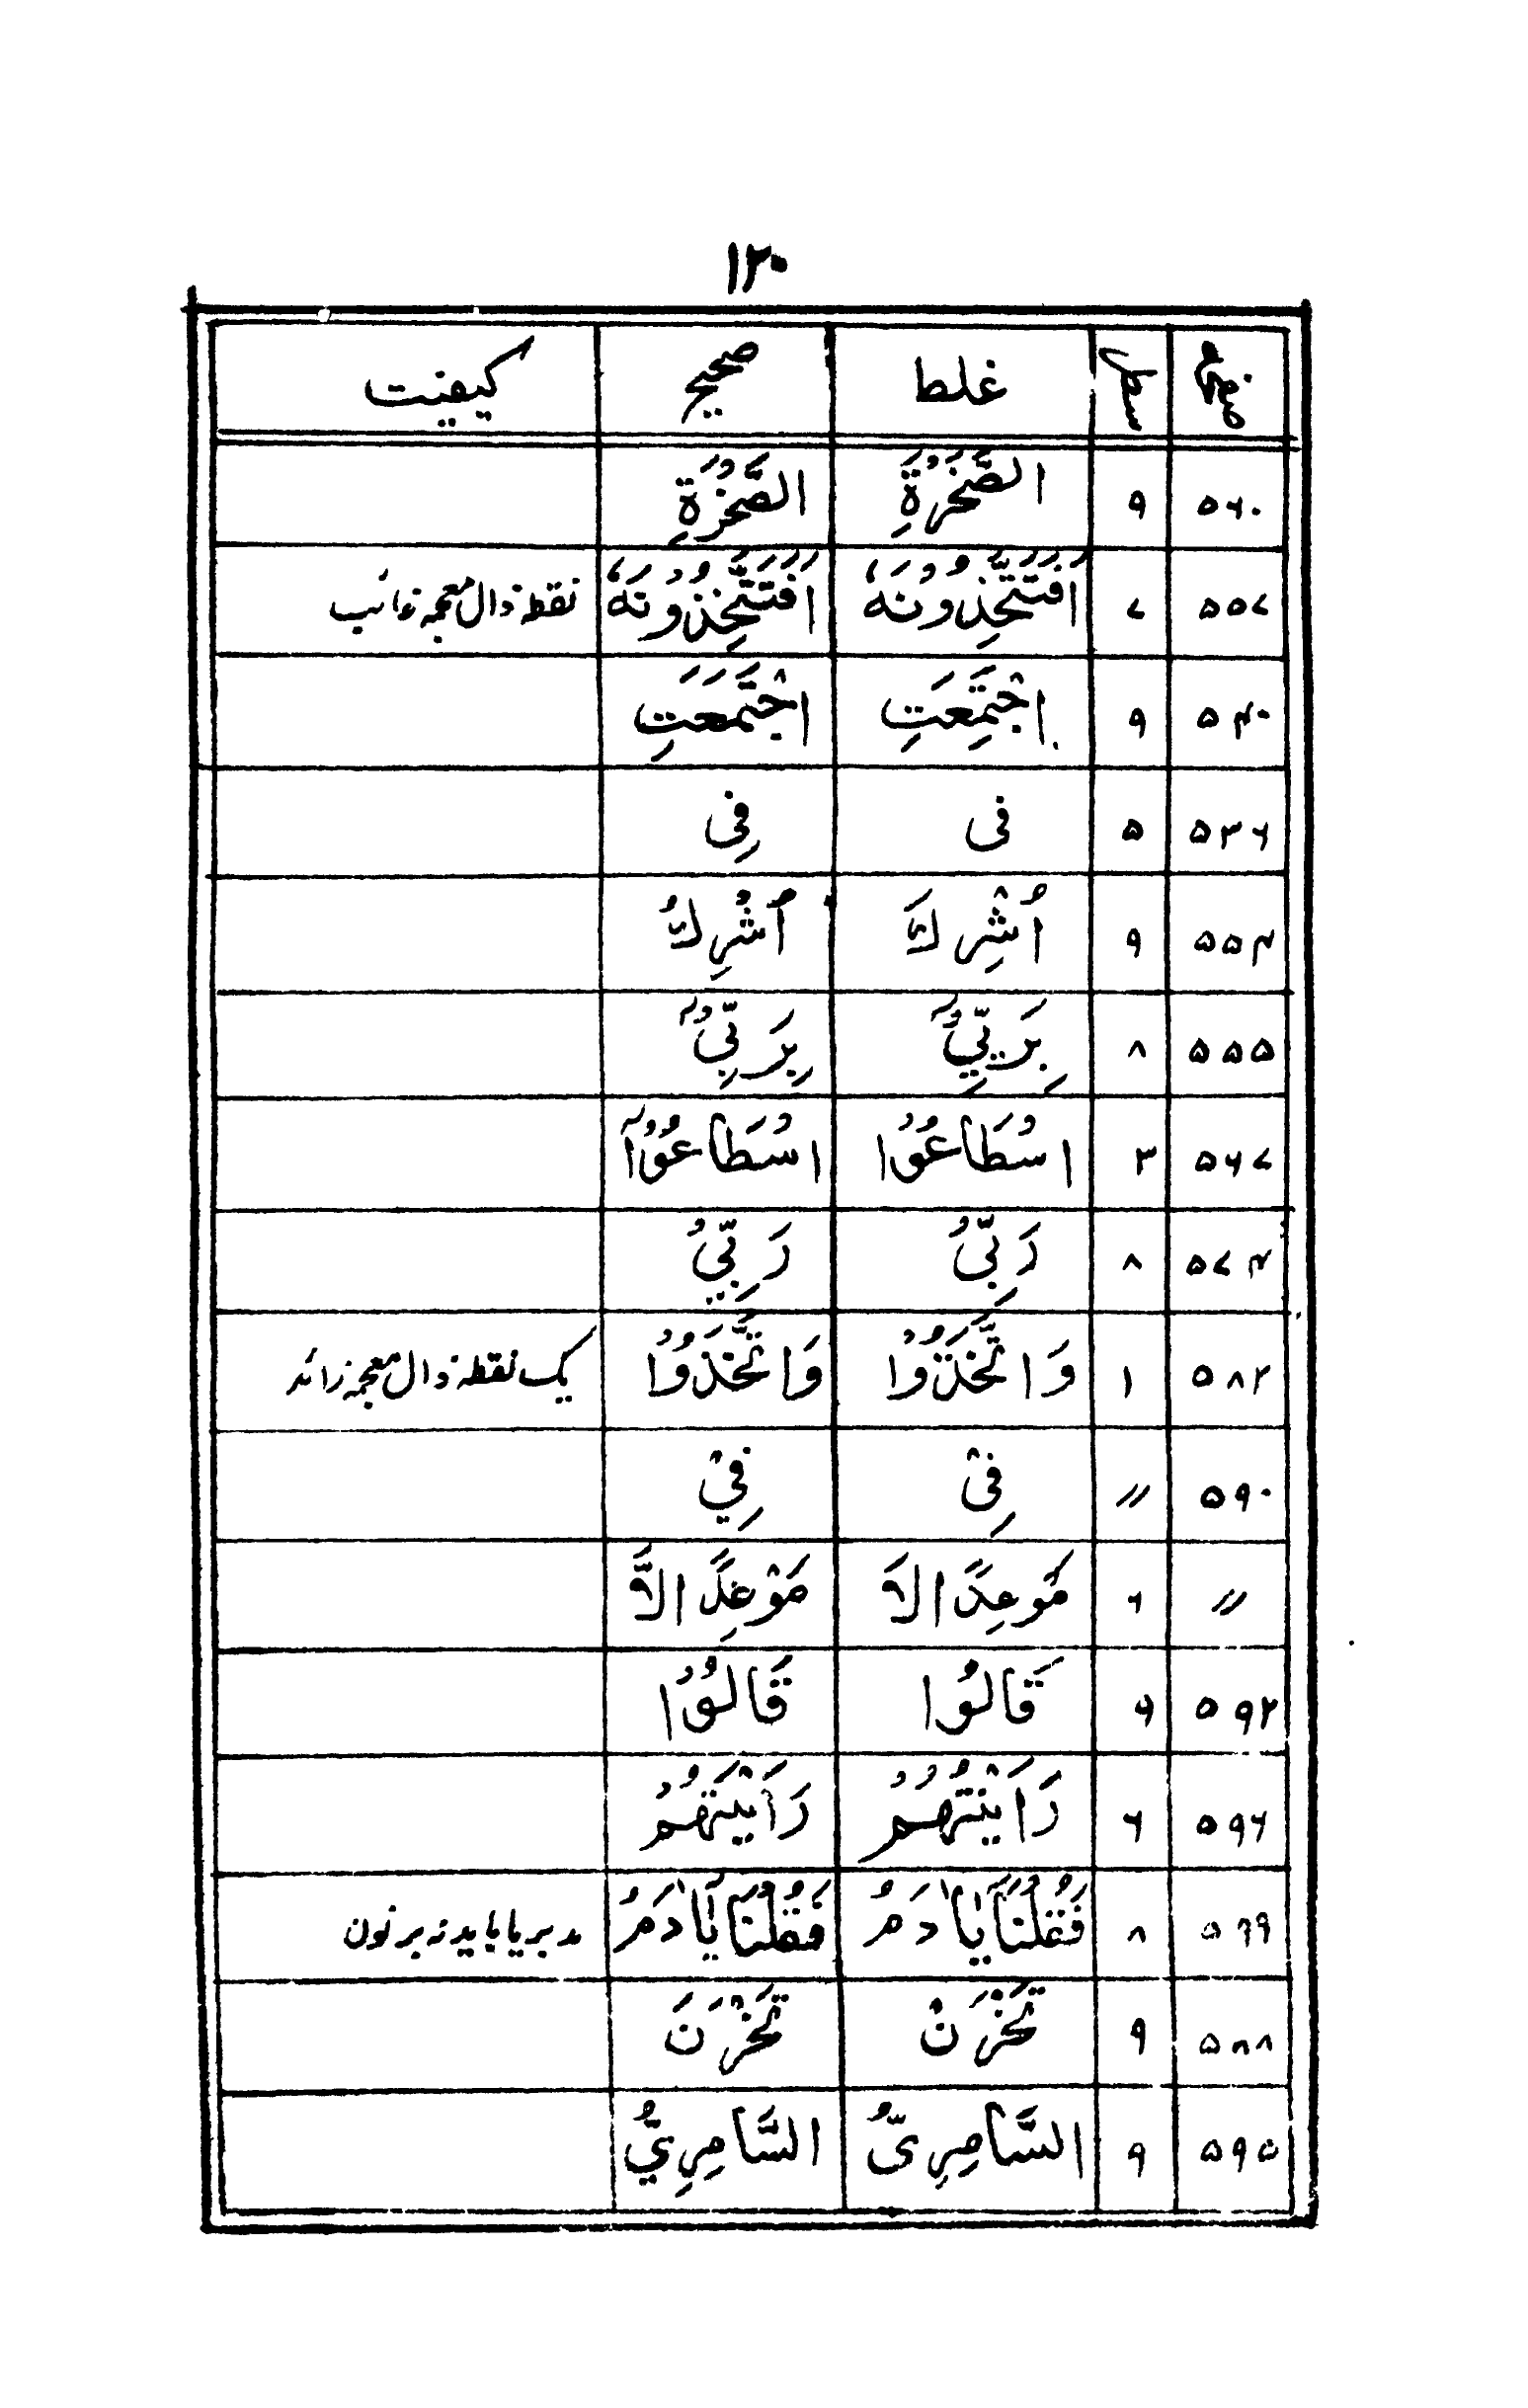 ۱۲۰
صفحہ سطر غلط صحیح کیفیت
۵۶۰ ۹ الصَّخُرَةِ الصَّخُرَةِ
۵۵۷ ۷ اَفَتَتَّخِذُوُنَهٗ اَفَتَتَّخِذُوُنَهٗ نقطہ ذال معجمہ غائب
۵۴۰ ۹ اجْتَمِعَتِ اجْتَمَعَتِ
۵۳۶ ۵ فى فِى
۵۵۴ ۹ اُشْرِكَ اُشْرِكُ
۵۵۵ ۸ بِرَبِّيُٓ بِرَبِّيُٓ
۵۶۷ ۳ اسُطَاعُوُا اسُطَاعُوُآ
۵۷۴ ۸ رَبِّىُ رَبِّيُ
۵۸۲ ۱ وَاتَّخَذُوُا وَاتَّخَذُوُا یک نقطہ ذال معجمہ زائد
۵۹۰ // فِىْ فِيْ
// ۶ مَوْعِدًا لا مَوْعِدًا لَّا
۵۹۲ ۶ قَالُوا قَالُوُا
۵۹۶ ۶ رَاَيْتَهُمُ رَاَيْتَهُمُ
۵۹۹ ۸ فَقُلُنَا يٰادَمُ فَقُلُنَا يٰٓادَمُ مد بر یا باید نہ بر نون
۵۸۸ ۹ تَحْزَنْ تَحْزَنَ
۵۹۵ ۹ السَّامِرِىُّ السَّامِرِيُّ